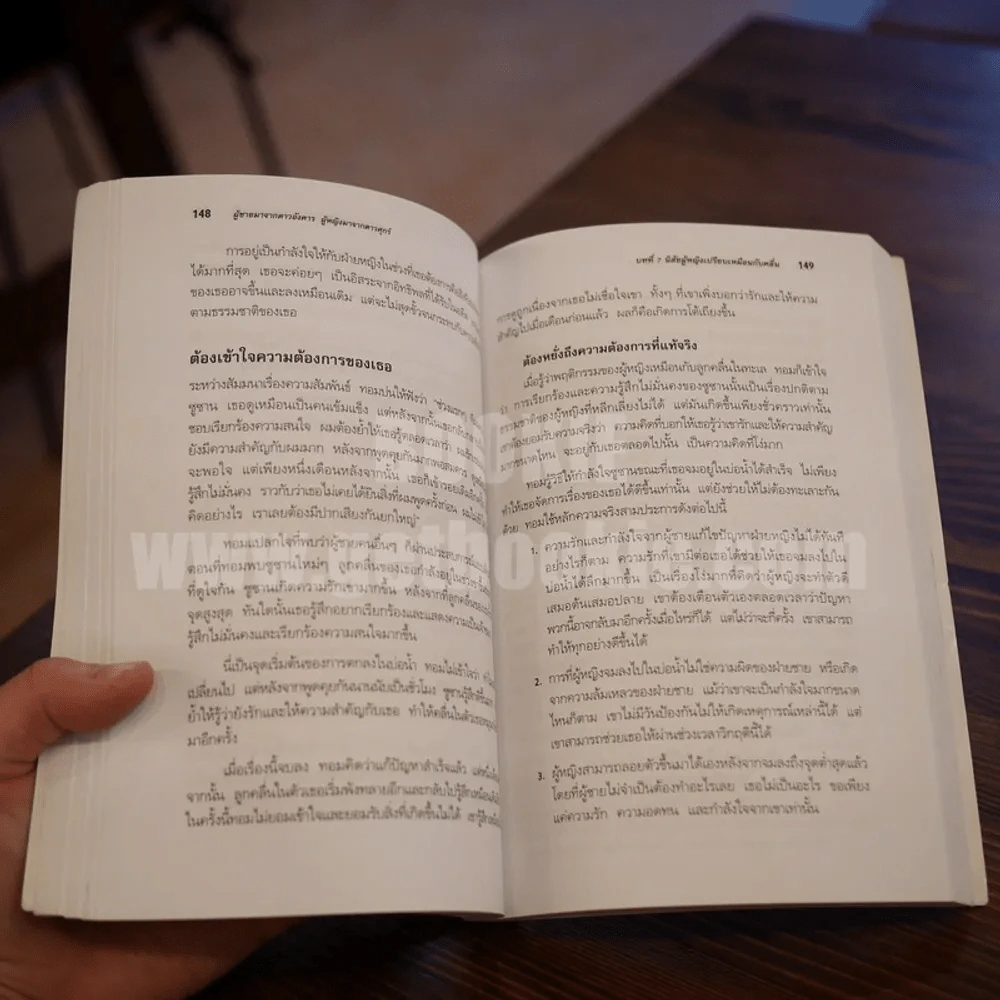 148 ผู้ชายมาจากดาวอังคาร ผู้หญิงมาจากดาวศุกร์
การอยู่เป็นกำลังใจให้กับฝ่ายหญิงในช่วงที่เธอต้องการ
ได้มากที่สุด เธอจะค่อยๆ เป็นอิสระจากอิทธิพลที่ได้รับในอดีต
ของเธออาจขึ้นและลงเหมือนเดิม แต่จะไม่สุดขั้วจนกระทบกับ
ตามธรรมชาติของเธอ
ต้องเข้าใจความต้องการของเธอ
ระหว่างสัมมนาเรื่องความสัมพันธ์ ทอมบ่นให้ฟังว่า "ช่วงแรกๆ
ซูซาน เธอดูเหมือนเป็นคนเข้มแข็ง แต่หลังจากนั้นเธอกลับ
ชอบเรียกร้องความสนใจ ผมต้องย้ำให้เธอรู้ตลอดเวลาว่า
ยังมีความสำคัญกับผมมาก หลังจากพูดคุยกันมากพอสมควร
จะพอใจ แต่เพียงหนึ่งเดือนหลังจากนั้น เธอก็เข้ารอยเดิมอีก
รู้สึกไม่มั่นคง ราวกับว่าเธอไม่เคยได้ยินสิ่งที่ผมพูดครั้งก่อน
คิดอย่างไร เราเลยต้องมีปากเสียงกันยกใหญ่"
ทอมแปลกใจที่พบว่าผู้ชายคนอื่นๆ ก็ผ่านประสบการณ์
ตอนที่ทอมพบซูซานใหม่ๆ ลูกคลื่นของเธอกำลังอยู่ในช่วง
ที่ดูใจกัน ซูซานเกิดความรักเขามากขึ้น หลังจากที่ลูกคลื่น
จุดสูงสุด ทันใดนั้นเธอรู้สึกอยากเรียกร้องและแสดงความเป็น
รู้สึกไม่มั่นคงและเรียกร้องความสนใจมากขึ้น
นี่เป็นจุดเริ่มต้นของการตกลงในบ่อน้ำ ทอมไม่เข้าใจว่า
เปลี่ยนไป แต่หลังจากพูดคุยกันนานนับเป็นชั่วโมง ซูซานรู้สึกดีขึ้น
ย้ำให้รู้ว่ายังรักและให้ความสำคัญกับเธอ ทำให้คลื่นในตัวเธอ
มาอีกครั้ง
เมื่อเรื่องนี้จบลง ทอมคิดว่าแก้ปัญหาสำเร็จแล้ว
จากนั้น ลูกคลื่นในตัวเธอเริ่มพังทลายอีกและกลับไปรู้สึกเหมือน
ในครั้งนี้ทอมไม่ยอมเข้าใจและยอมรับสิ่งที่เกิดขึ้นไม่ได้ เขารู้สึก
บทที่ 7 นิสัยผู้หญิงเปรียบเหมือนกับคลื่น 149
เนื่องจากเธอไม่เชื่อใจเขา ทั้งๆ ที่เขาเพิ่งบอกว่ารักและให้ความ
สำคัญไปเมื่อเดือนก่อนแล้ว ผลก็คือเกิดการโต้เถียงขึ้น
ต้องหยั่งถึงความต้องการที่แท้จริง
เมื่อรู้ว่าพฤติกรรมของผู้หญิงเหมือนกับลูกคลื่นในทะเล ทอมก็เข้าใจ
ว่า การเรียกร้องและความรู้สึกไม่มั่นคงของซูซานนั้นเป็นเรื่องปกติตาม
ธรรมชาติของผู้หญิงที่หลีกเลี่ยงไม่ได้ แต่มันเกิดขึ้นเพียงชั่วคราวเท่านั้น
เขาต้องยอมรับความจริงว่า ความคิดที่บอกให้เธอรู้ว่าเขารักและให้ความสำคัญ
มากขนาดไหน จะอยู่กับเธอตลอดไปนั้น เป็นความคิดที่โง่มาก
ทอมรู้วิธีให้กำลังใจซูซานขณะที่เธอจมอยู่ในบ่อน้ำได้สำเร็จ ไม่เพียง
ทำให้เธอจัดการเรื่องของเธอได้ดีขึ้นเท่านั้น แต่ยังช่วยให้ไม่ต้องทะเลาะกัน
ด้วย ทอมใช้หลักความจริงสามประการดังต่อไปนี้
1. ความรักและกำลังใจจากผู้ชายแก้ไขปัญหาฝ่ายหญิงไม่ได้ทันที
อย่างไรก็ตาม ความรักที่เขามีต่อเธอได้ช่วยให้เธอจมลงไปใน
บ่อน้ำได้ลึกมากขึ้น เป็นเรื่องโง่มากที่คิดว่าผู้หญิงจะทำตัวดี
เสมอต้นเสมอปลาย เขาต้องเตือนตัวเองตลอดเวลาว่าปัญหา
พวกนี้อาจกลับมาอีกครั้งเมื่อไหร่ก็ได้ แต่ไม่ว่าจะกี่ครั้ง เขาสามารถ
ทำให้ทุกอย่างดีขึ้นได้
2. การที่ผู้หญิงจมลงไปในบ่อน้ำไม่ใช่ความผิดของฝ่ายชาย หรือเกิด
จากความล้มเหลวของฝ่ายชาย แม้ว่าเขาจะเป็นกำลังใจมากขนาด
ไหนก็ตาม เขาไม่มีวันป้องกันไม่ให้เกิดเหตุการณ์เหล่านี้ได้ แต่
เขาสามารถช่วยเธอให้ผ่านช่วงเวลาวิกฤตินี้ได้
3. ผู้หญิงสามารถลอยตัวขึ้นมาได้เองหลังจากจมลงถึงจุดต่ำสุดแล้ว
โดยที่ผู้ชายไม่จำเป็นต้องทำอะไรเลย เธอไม่เป็นอะไร ขอเพียง
แค่ความรัก ความอดทน และกำลังใจจากเขาเท่านั้น